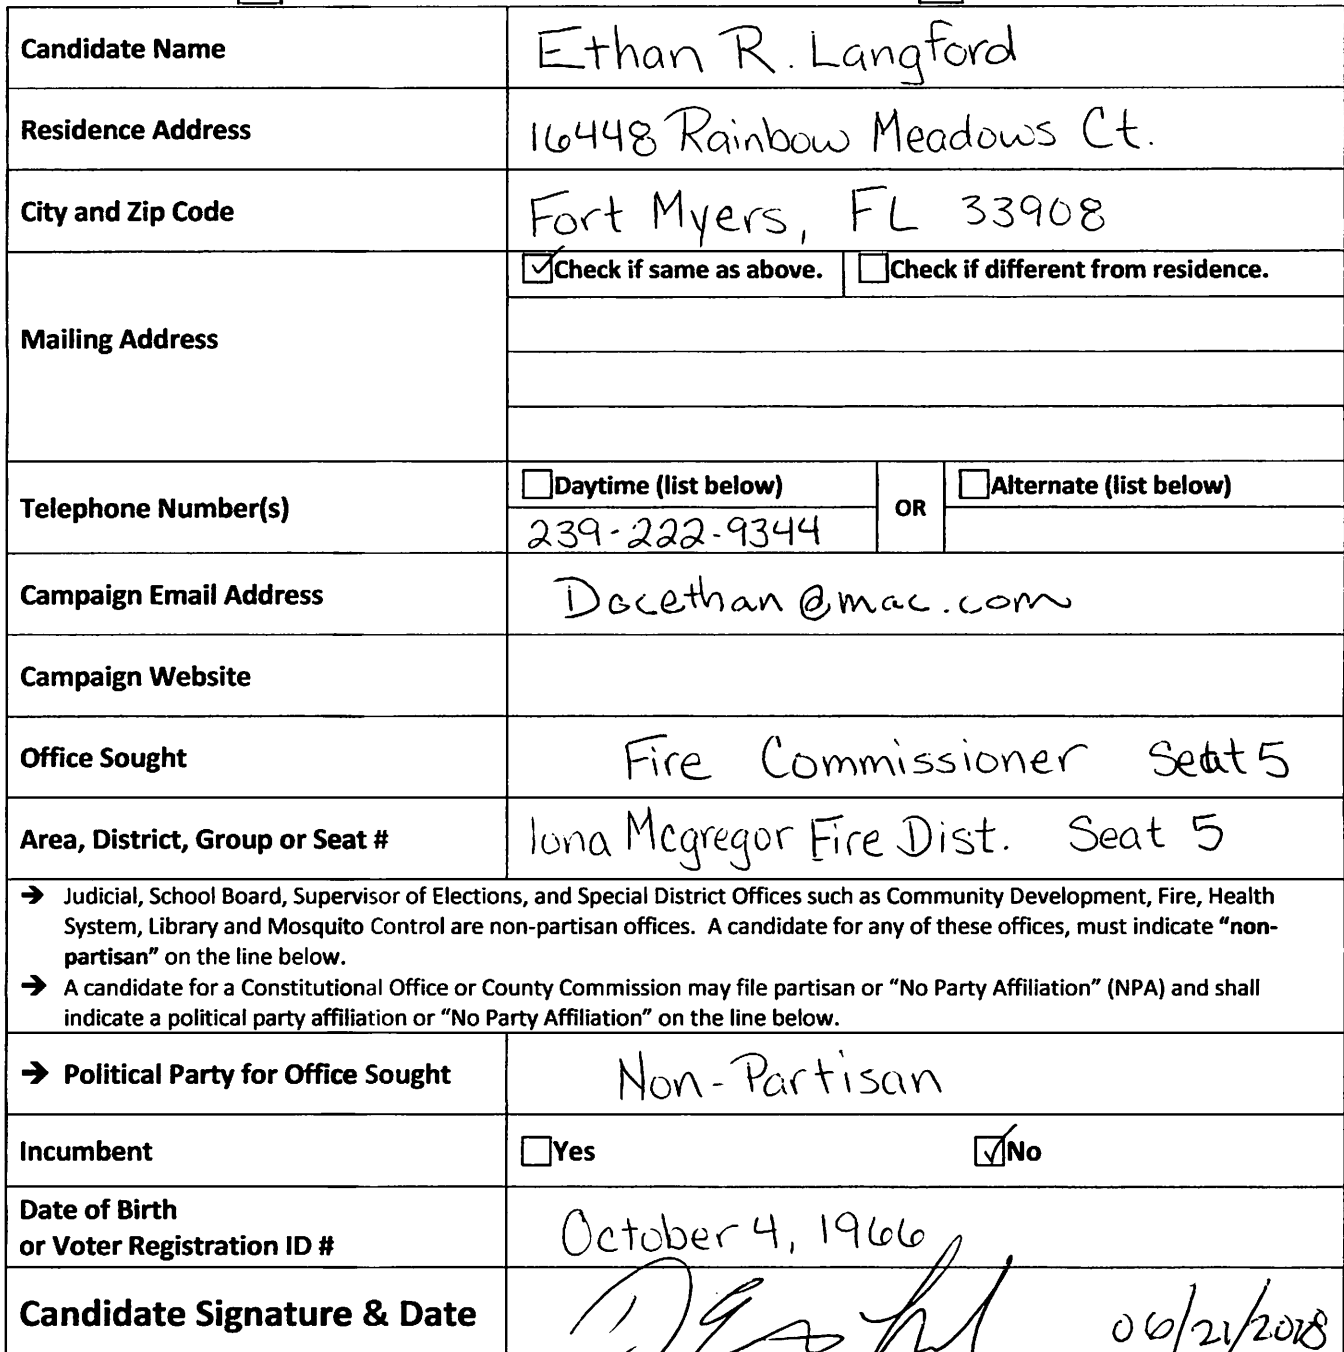 Candidate Name Ethan R. Langford
Residence Address 16448 Rainbow Meadows Ct.
City and Zip Code Fort Myers, FL 33908
Check if same as above. Check if different from residence.
Mailing Address
Daytime (list below) Alternate (list below)
Telephone Number(s) OR
239-222-9344
Campaign Email Address Docethan@mac.com
Campaign Website
Office Sought Fire Commissioner Seat 5
Area, District, Group or Seat # Iona Mcgregor Fire Dist. Seat 5
→ Judicial, School Board, Supervisor of Elections, and Special District Offices such as Community Development, Fire, Health
System, Library and Mosquito Control are non-partisan offices. A candidate for any of these offices, must indicate "non-
partisan" on the line below.
→ A candidate for a Constitutional Office or County Commission may file partisan or "No Party Affiliation" (NPA) and shall
indicate a political party affiliation or "No Party Affiliation" on the line below.
→ Political Party for Office Sought Non-Partisan
Incumbent Yes No
Date of Birth
or Voter Registration ID # October 4, 1966
Candidate Signature & Date 06/21/2018